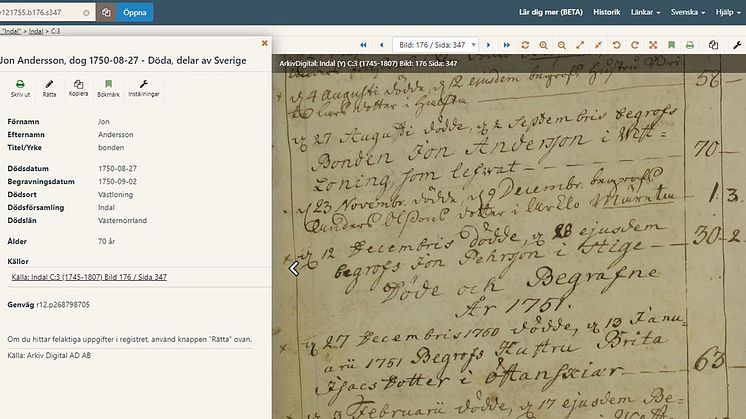 v121755.b176.s347
Öppna
Lär dig mer (BETA)
Historik
Länkar
Svenska
Hjälp
"Indal" > Indal > C:3
Bild: 176 / Sida: 347
Jon Andersson, dog 1750-08-27 - Döda, delar av Sverige
Skriv ut
Rätta
Kopiera
Bokmärk
Inställningar
Förnamn Jon
Efternamn Andersson
Titel/Yrke bonden
Dödsdatum 1750-08-27
Begravningsdatum 1750-09-02
Dödsort Västloning
Dödsförsamling Indal
Dödslän Västernorrland
Ålder 70 år
Källor
Källa: Indal C:3 (1745-1807) Bild 176 / Sida 347
Genväg r12.p268798705
Om du hittar felaktiga uppgifter i registret, använd knappen "Rätta" ovan.
Källa: Arkiv Digital AD AB
ArkivDigital: Indal (Y) C:3 (1745-1807) Bild: 176 Sida: 347
4 Augusti dödde, 12 ejusdem begrofs Hustru 58
27 Augusti dödde, 2 Septembris begrofs
Bonden Jon Anderson i Wäst-
Loning, som lefwat 70
23 Novembr. dödde, 9 Decembr. begrofs
Anders Olsons dotter i 1. 3.
12 Decembris dödde, 28 ejusdem
begrofs Jon Pehrson i Stige 30 2
Döde och Begrafne
År 1751.
27 Decembris 1750 dödde, 13 Janu-
arii 1751 Begrofs Hustru Brita
Isacs Dotter i 63
3 Februarii dödde, 17 ejusdem Be-